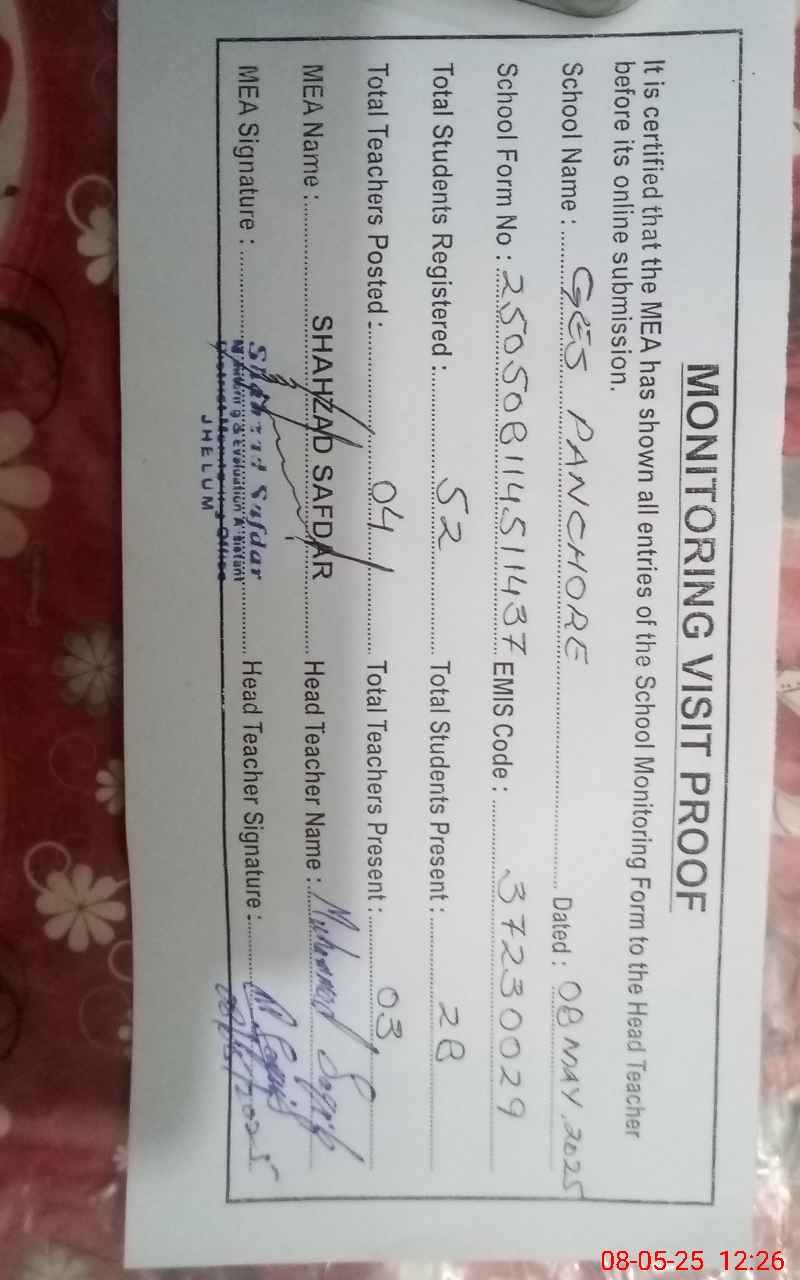 MONITORING VISIT PROOF
It is certified that the MEA has shown all entries of the School Monitoring Form to the Head Teacher
before its online submission.
School Name : GES PANCHORE Dated : 08 MAY, 2025
School Form No : 250508114511437 EMIS Code : 37230029
Total Students Registered : 52 Total Students Present : 28
Total Teachers Posted : 04 Total Teachers Present : 03
MEA Name : SHAHZAD SAFDAR Head Teacher Name : Muhammad Saqib
MEA Signature : Shahzad Safdar Head Teacher Signature : M Saqib
Monitoring & Evaluation Assistant
District Monitoring Office
JHELUM
08-05-25 12:26